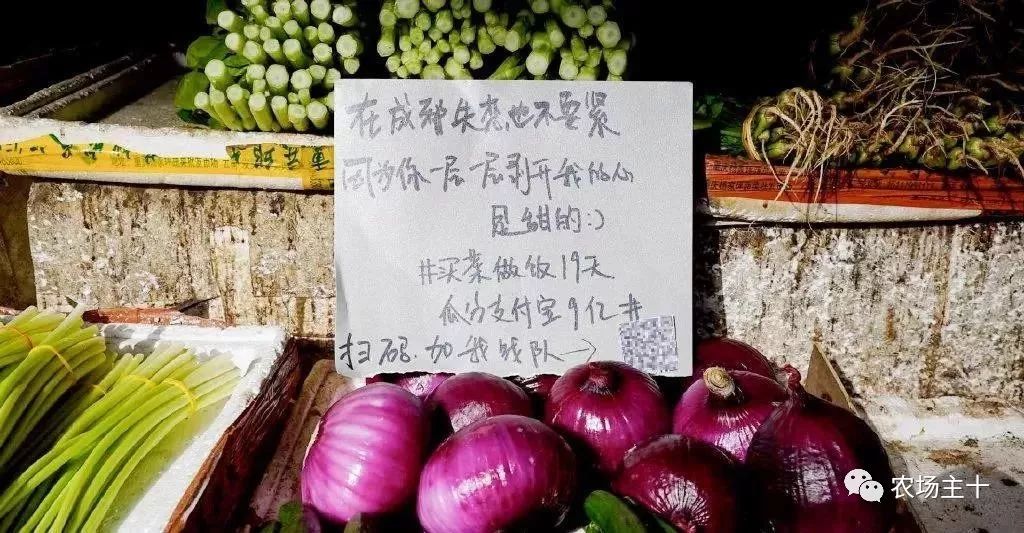 在成种失恋也不要紧
因为你一层一层剥开我的心
是甜的:)
#买菜做饭19天
瓜分支付宝9亿#
扫码.加我战队→
农场主十